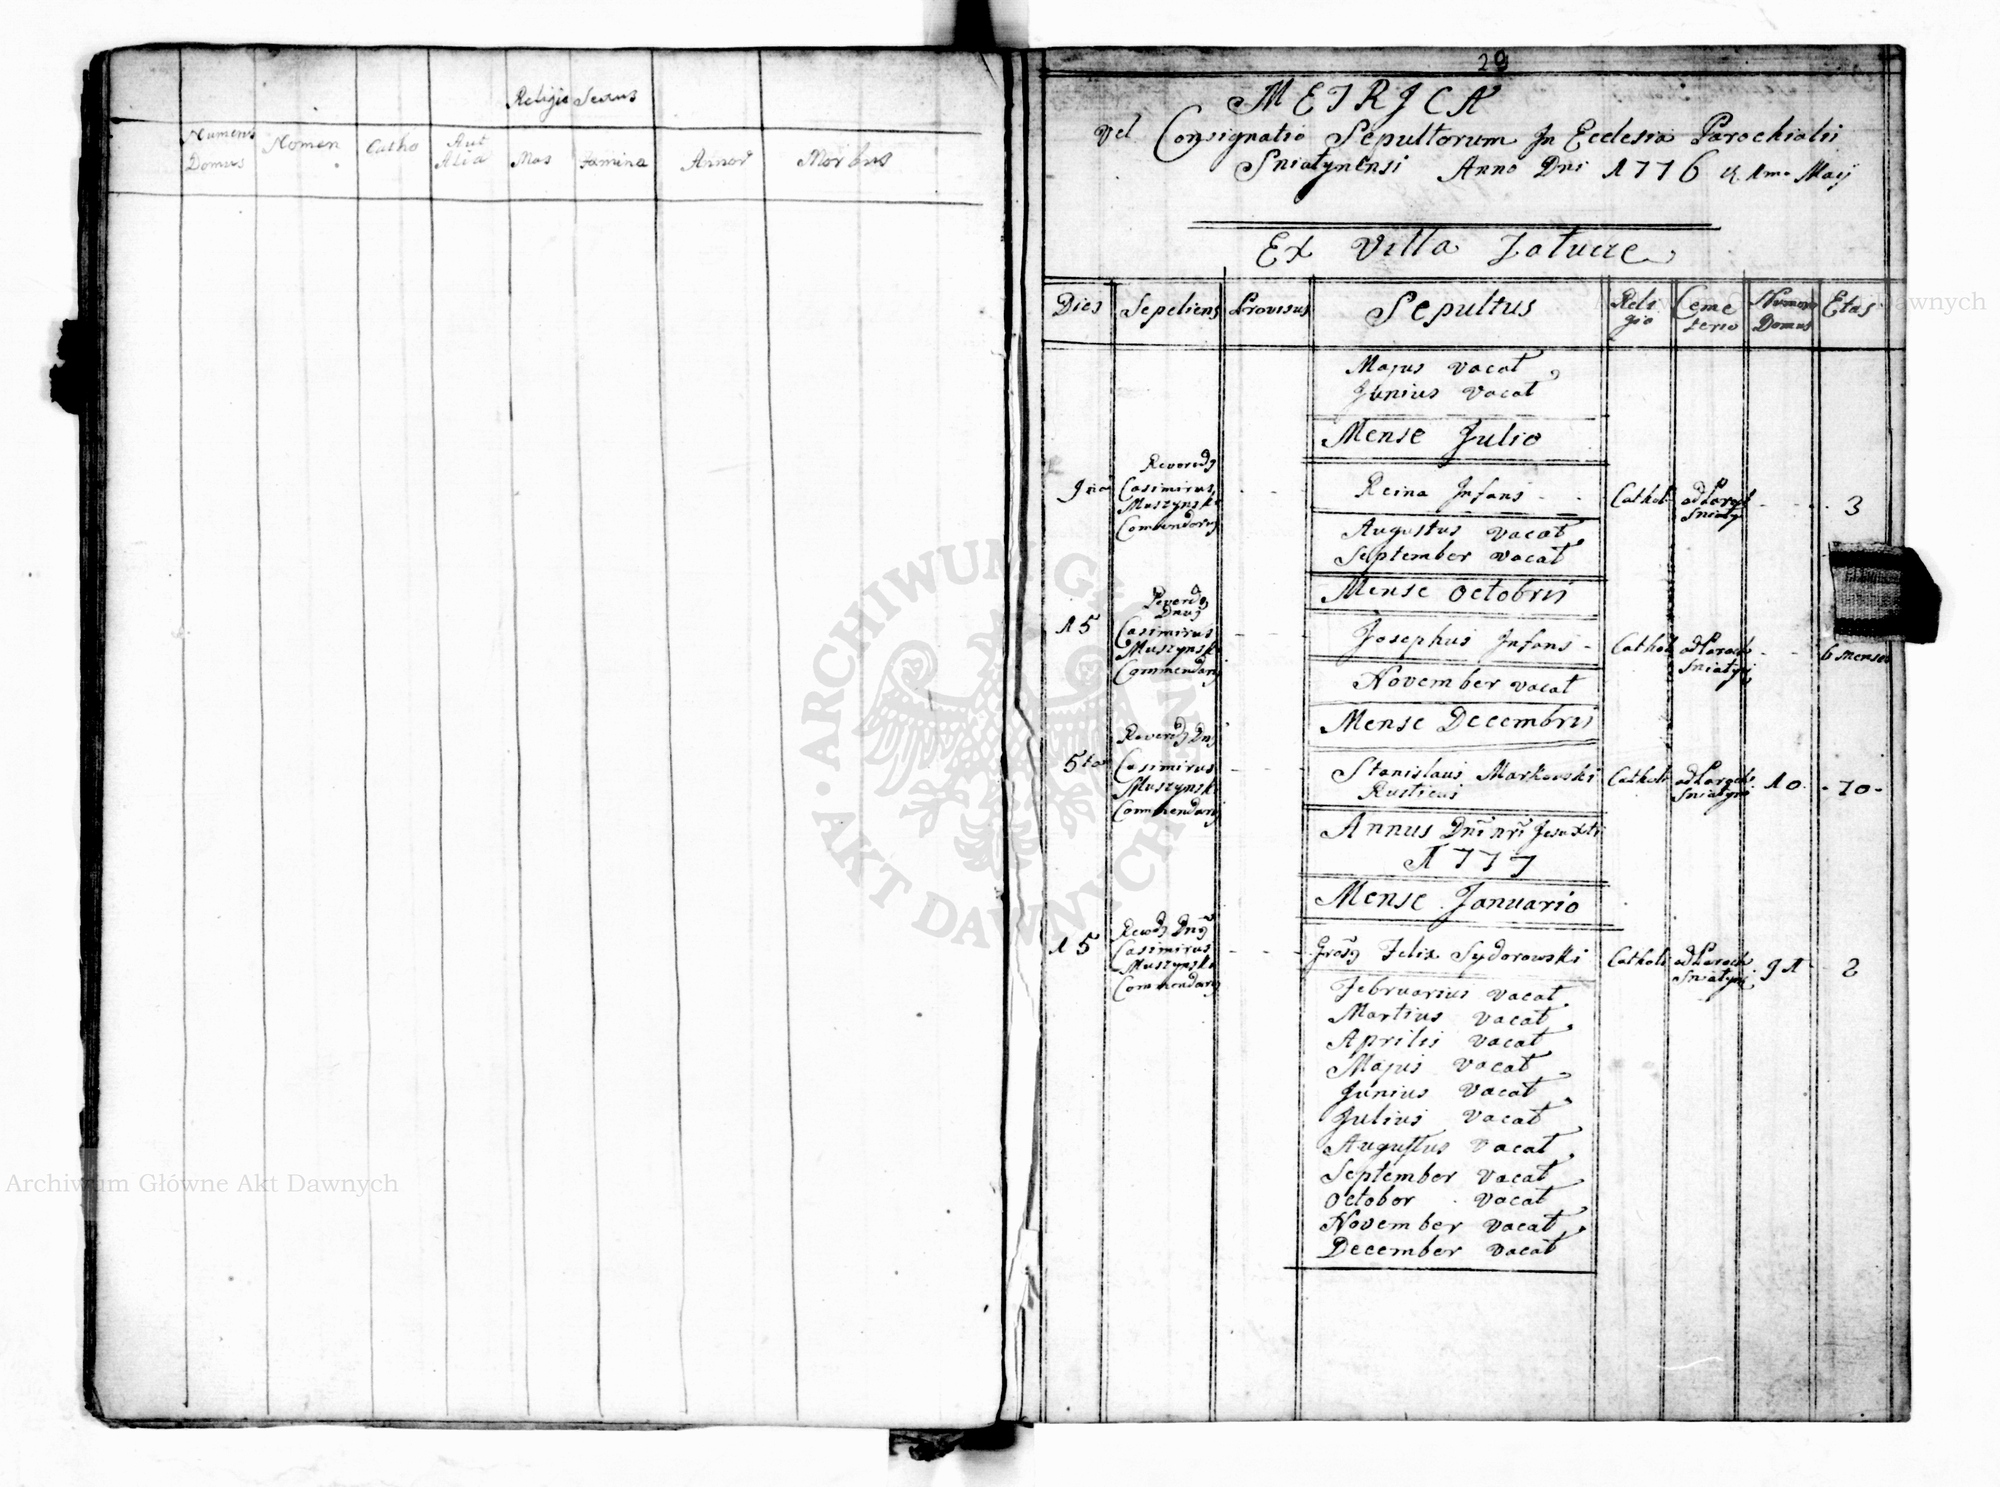 Religio Sexus
Numerus Domus
Nomen
Catho
Aut Alia
Mas
Famina
Annor
Morbus
29
METRICA
vel Consignatio Sepultorum In Ecclesia Parochialii
Sniatynensi Anno Dni 1776 1ma Maij
Ex Villa Zatucze
Dies
Sepeliens
Provisus
Sepultus
Reli
gio
Ceme
terio
Numero
Domus
Etas
Majus vacat
Junius vacat
Mense Julio
9na
Reveredg
Casimirus
Muszynski
Comendarg
Reina Infans
Cathol
ad Paroch
Sniaty
3
Augustus vacat
September vacat
Mense Octobris
15
Reverdg
Dnug
Casimirus
Muszynski
Commendarg
Josephus Infans
Cathol
ad Paroch
Sniatyn
6 Menses
November vacat
Mense Decembris
5ta
Reverdg Dng
Casimirus
Muszynski
Commendarg
Stanislaus Markowski
Rusticus
Catholi
ad Paroch
Sniatyn
10
70
Annus Dni nri Jesu Xti
1777
Mense Januario
15
Revdg Dng
Casimirus
Muszynski
Commendarg
Felix Sydorowski
Catholi
ad Paroch
Sniatyn
91
2
Februarius vacat
Martius vacat
Aprilis vacat
Majus vacat
Junius vacat
Julius vacat
Augustus vacat
September vacat
Octobor vacat
November vacat
December vacat
ARCHIWUM GŁÓWNE AKT DAWNYCH
Archiwum Główne Akt Dawnych
Archiwum Główne Akt Dawnych